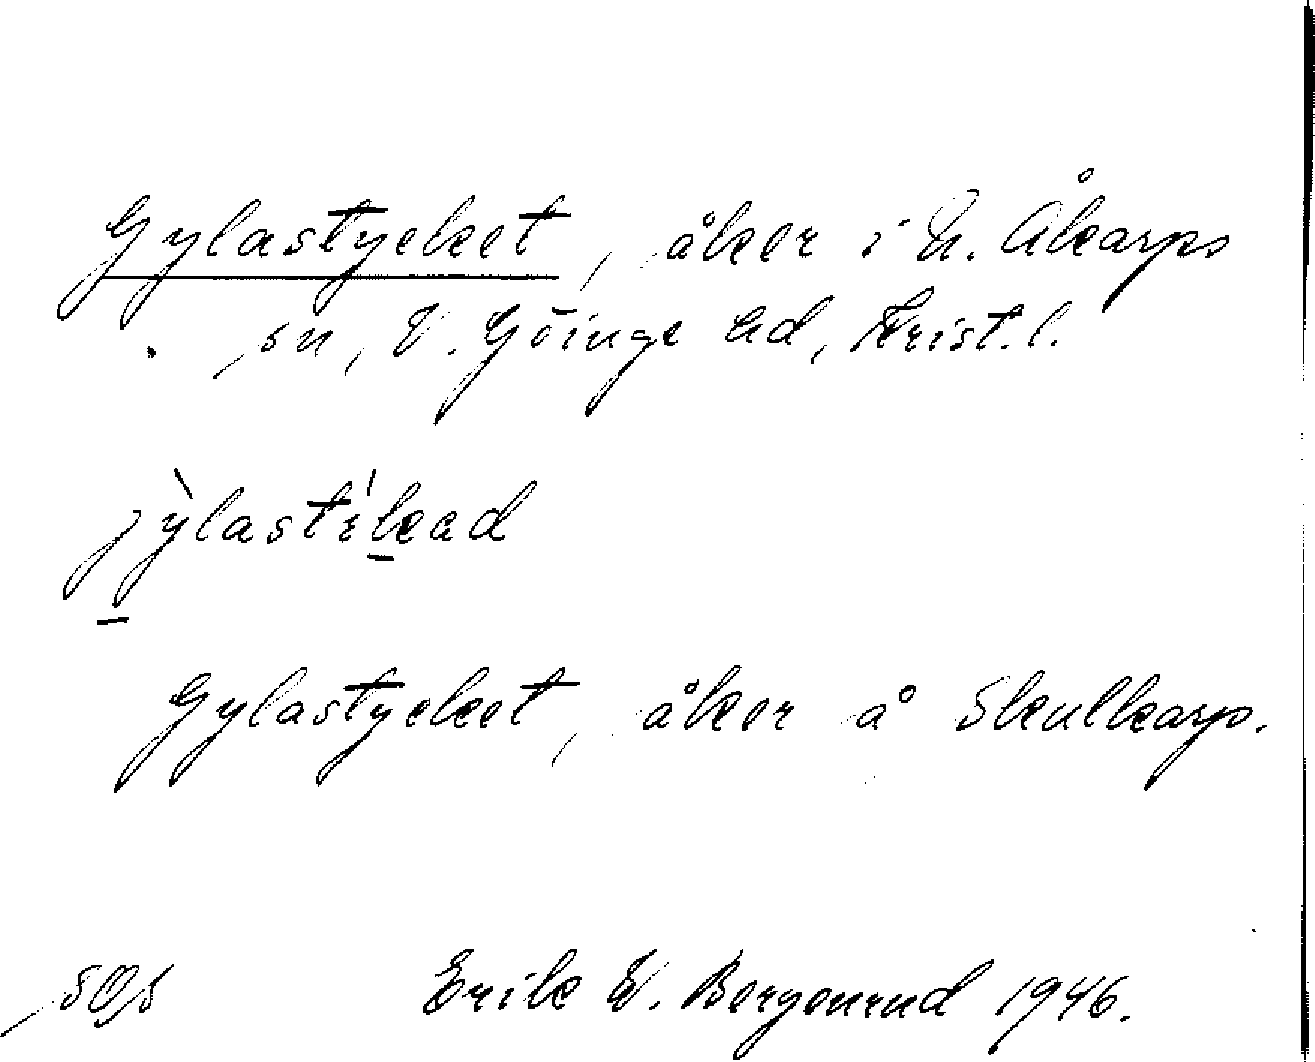 Gylastycket, åker i N. Åkarps
sn, V. Göinge hd, Krist. l.
jỳlasti̍kad
Gylastycket, åker å Skulkarp.
Erik W. Bergenrud 1946.